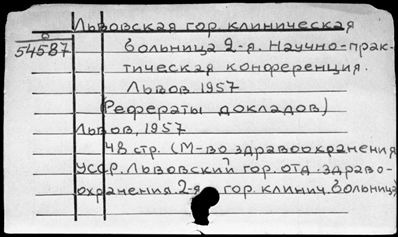 Львовская гор. клиническая
б
54587
больница 2-я. Научно-прак-
тическая конференция.
Львов. 1957
(Рефераты докладов)
Львов, 1957
48 стр. (М-во здравоохранения
УССР. Львовский гор. отд. здраво-
охранения. 2-я гор. клинич. больница)